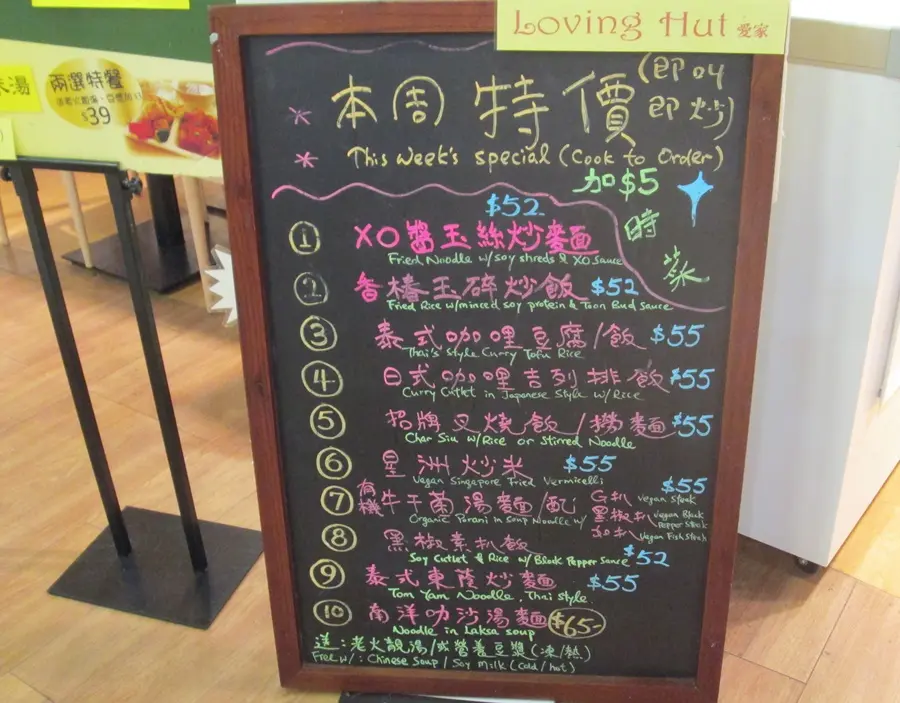 Loving Hut 愛家
兩選特餐
$39
本周特價 (即叫即炒)
This week's special (Cook to Order)
加$5
時菜
$52
① XO醬玉絲炒麵
Fried Noodle w/soy shreds & XO sauce
② 香椿玉碎炒飯 $52
Fried Rice w/minced soy protein & Toon Bud Sauce
③ 泰式咖哩豆腐/飯 $55
Thai's Style Curry Tofu Rice
④ 日式咖哩吉列排飯 $55
Curry Cutlet in Japanese Style w/Rice
⑤ 招牌叉燒飯/撈麵 $55
Char Siu w/Rice or Stirred Noodle
⑥ 星洲炒米 $55
Vegan Singapore Fried Vermicelli
⑦ 有機牛干菌湯麵/配 $55
Organic Porani in Soup Noodle w/
G扒 Vegan Steak
黑椒扒 Vegan Black Pepper Steak
扒 Vegan Fish Steak
⑧ 黑椒素扒飯
Soy Cutlet & Rice w/Black Pepper Sauce $52
⑨ 泰式東蔭炒麵 $55
Tom Yam Noodle, Thai Style
⑩ 南洋叻沙湯麵 $65-
Noodle in Laksa soup
送:老火靚湯/或營養豆漿(凍/熱)
Free w/: Chinese Soup / Soy Milk (Cold/hot)